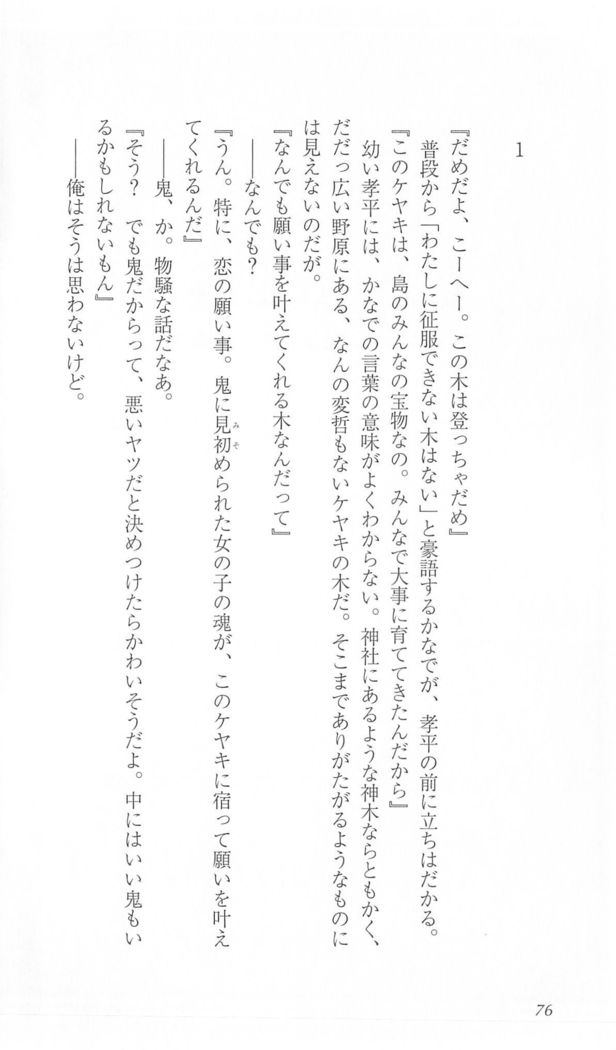 1
『だめだよ、こーへー。この木は登っちゃだめ』
普段から「わたしに征服できない木はない」と豪語するかなでが、孝平の前に立ちはだかる。
『このケヤキは、島のみんなの宝物なの。みんなで大事に育ててきたんだから』
幼い孝平には、かなでの言葉の意味がよくわからない。神社にあるような神木ならともかく、
だだっ広い野原にある、なんの変哲もないケヤキの木だ。そこまでありがたがるようなものに
は見えないのだが。
『なんでも願い事を叶えてくれる木なんだって』
――なんでも？
『うん。特に、恋の願い事。鬼に見初められた女の子の魂が、このケヤキに宿って願いを叶え
みそ
てくれるんだ』
――鬼、か。物騒な話だなあ。
『そう？　でも鬼だからって、悪いヤツだと決めつけたらかわいそうだよ。中にはいい鬼もい
るかもしれないもん』
――俺はそうは思わないけど。
76